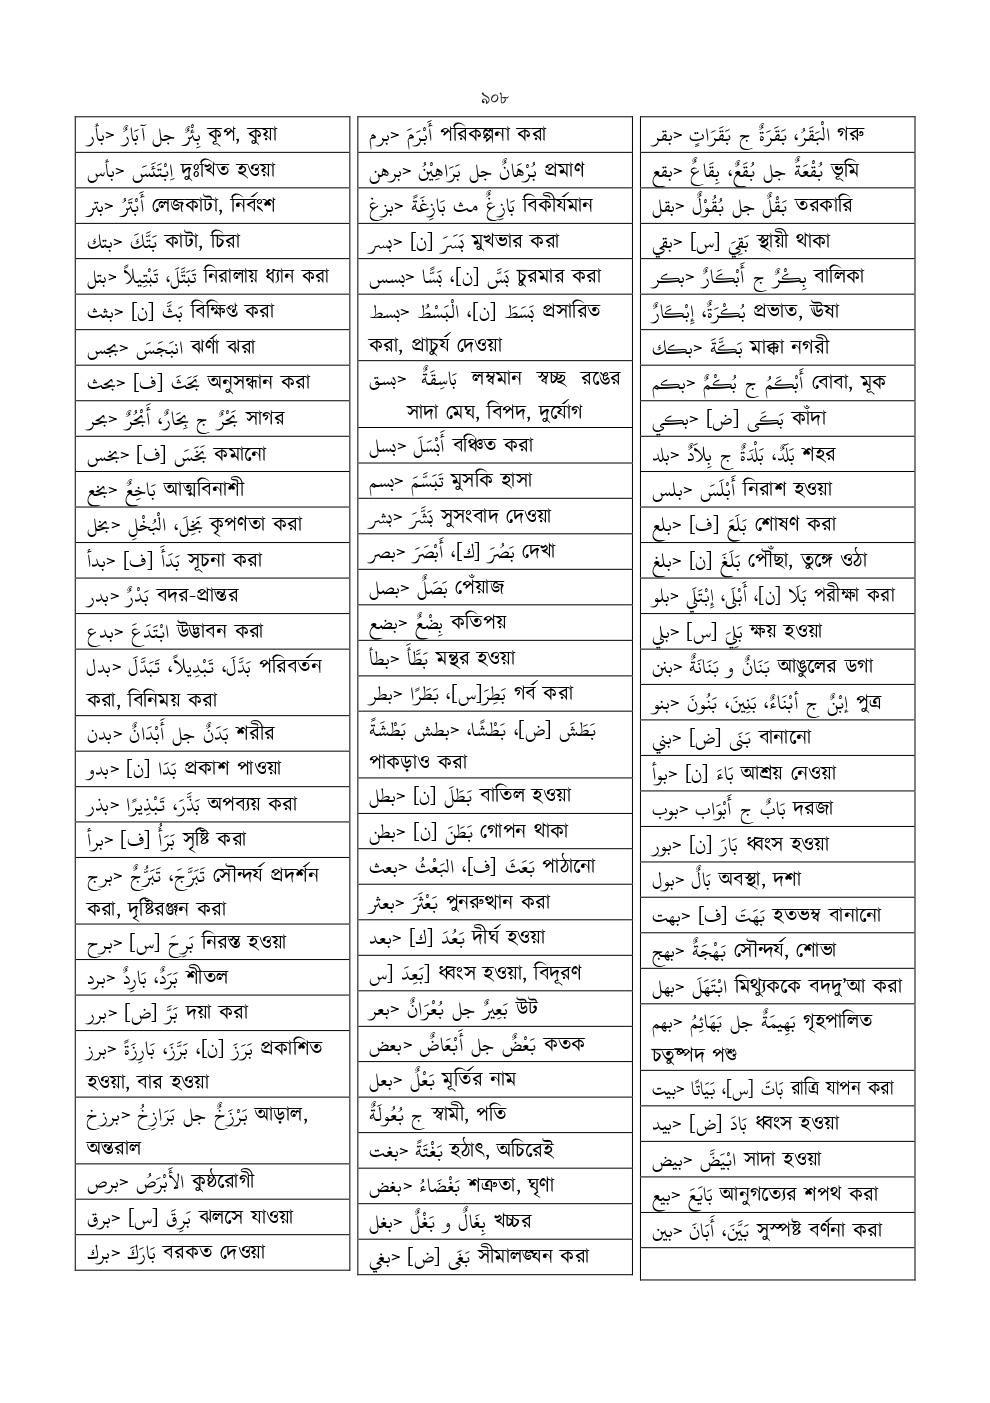 ৯০৮
بأر> بِئْرٌ جل آبَارٌ কূপ, কুয়া
بأس> اِبْتَئَسَ দুঃখিত হওয়া
بتر> أَبْتَرُ লেজকাটা, নির্বংশ
بتك> بَتَّكَ কাটা, চিরা
بتل> تَبَتَّلَ، تَبْتِيلاً নিরালায় ধ্যান করা
بثث> [ن] بَثَّ বিক্ষিপ্ত করা
بجس> انبَجَسَ ঝর্ণা ঝরা
بحث> [ف] بَحَثَ অনুসন্ধান করা
بحر> بَحْرٌ ج بِحَارٌ، أَبْحُرٌ সাগর
بخس> [ف] بَخَسَ কমানো
بخع> بَاخِعٌ আত্মবিনাশী
بخل> بَخِلَ، الْبُخْلِ কৃপণতা করা
بدأ> [ف] بَدَأَ সূচনা করা
بدر> بَدْرٌ বদর-প্রান্তর
بدع> ابْتَدَعَ উদ্ভাবন করা
بدل> بَدَّلَ، تَبْدِيلاً، تَبَدَّلَ পরিবর্তন
করা, বিনিময় করা
بدن> بَدَنٌ جل أَبْدَانٌ শরীর
بدو> [ن] بَدَا প্রকাশ পাওয়া
بذر> بَذَّرَ، تَبْذِيرًا অপব্যয় করা
برأ> [ف] بَرَأُ সৃষ্টি করা
برج> تَبَرَّجَ، تَبَرُّجٌ সৌন্দর্য প্রদর্শন
করা, দৃষ্টিরঞ্জন করা
برح> [س] بَرِحَ নিরস্ত হওয়া
برد> بَرَدٌ، بَارِدٌ শীতল
برر> [ض] بَرَّ দয়া করা
برز> بَرَزَ [ن]، بَرَّزَ، بَارِزَةً প্রকাশিত
হওয়া, বার হওয়া
برزخ> بَرْزَخٌ جل بَرَازِخُ আড়াল,
অন্তরাল
برص> الأَبْرَصُ কুষ্ঠরোগী
برق> [س] بَرِقَ ঝলসে যাওয়া
برك> بَارَكَ বরকত দেওয়া
برم> أَبْرَمَ পরিকল্পনা করা
برهن> بُرْهَانٌ جل بَرَاهِيْنُ প্রমাণ
بزغ> بَازِغٌ مث بَازِغَةً বিকীর্যমান
بسر> [ن] بَسَرَ মুখভার করা
بسس> بَسَّ [ن]، بَسًّا চুরমার করা
بسط> بَسَطَ [ن]، الْبَسْطُ প্রসারিত
করা, প্রাচুর্য দেওয়া
بسق> بَاسِقَةٌ লম্বমান স্বচ্ছ রঙের
সাদা মেঘ, বিপদ, দুর্যোগ
بسل> أَبْسَلَ বঞ্চিত করা
بسم> تَبَسَّمَ মুসকি হাসা
بشر> بَشَّرَ সুসংবাদ দেওয়া
بصر> بَصُرَ [ك]، أَبْصَرَ দেখা
بصل> بَصَلٌ পেঁয়াজ
بضع> بِضْعٌ কতিপয়
بطأ> بَطَّأَ মন্থর হওয়া
بطر> بَطِرَ[س]، بَطَرًا গর্ব করা
بطش> بَطَشَ [ض]، بَطْشًا، بَطْشَةً
পাকড়াও করা
بطل> [ن] بَطَلَ বাতিল হওয়া
بطن> [ن] بَطَنَ গোপন থাকা
بعث> بَعَثَ [ف]، البَعْثُ পাঠানো
بعثر> بَعْثَرَ পুনরুত্থান করা
بعد> [ك] بَعُدَ দীর্ঘ হওয়া
س] بَعِدَ] ধ্বংস হওয়া, বিদূরণ
بعر> بَعِيرٌ جل بُعْرَانٌ উট
بعض> بَعْضٌ جل أَبْعَاضٌ কতক
بعل> بَعْلٌ মূর্তির নাম
ج بُعُولَةٌ স্বামী, পতি
بغت> بَغْتَةً হঠাৎ, অচিরেই
بغض> بَغْضَاءُ শত্রুতা, ঘৃণা
بغل> بِغَالٌ و بَغْلٌ খচ্চর
بغي> [ض] بَغَى সীমালঙ্ঘন করা
بقر> الْبَقَرُ، بَقَرَةٌ ج بَقَرَاتٍ গরু
بقع> بُقْعَةٌ جل بُقَعٌ، بِقَاعٌ ভূমি
بقل> بَقْلٌ جل بُقُوْلٌ তরকারি
بقي> [س] بَقِيَ স্থায়ী থাকা
بكر> بِكْرٌ ج أَبْكَارٌ বালিকা
بُكْرَةٌ، إِبْكَارٌ প্রভাত, ঊষা
بكك> بَكَّةَ মাক্কা নগরী
بكم> أَبْكَمُ ج بُكْمٌ বোবা, মূক
بكي> [ض] بَكَى কাঁদা
بلد> بَلَدٌ، بَلْدَةٌ ج بِلاَدٌ শহর
بلس> أَبْلَسَ নিরাশ হওয়া
بلع> [ف] بَلَعَ শোষণ করা
بلغ> [ن] بَلَغَ পৌঁছা, তুঙ্গে ওঠা
بلو> بَلَا [ن]، أَبْلَى، إِبْتَلَي পরীক্ষা করা
بلي> [س] بَلِيَ ক্ষয় হওয়া
بنن> بَنَانٌ و بَنَانَةٌ আঙুলের ডগা
بنو> إبْنٌ ج أبْنَاءٌ، بَنِينَ، بَنُونَ পুত্র
بني> [ض] بَنَى বানানো
بوأ> [ن] بَاءَ আশ্রয় নেওয়া
بوب> بَابٌ ج أَبْوَاب দরজা
بور> [ن] بَارَ ধ্বংস হওয়া
بول> بَالٌ অবস্থা, দশা
بهت> [ف] بَهَتَ হতভম্ব বানানো
بهج> بَهْجَةٌ সৌন্দর্য, শোভা
بهل> ابْتَهَلَ মিথ্যুককে বদদু’আ করা
بهم> بَهِيمَةٌ جل بَهَائِمُ গৃহপালিত
চতুষ্পদ পশু
بيت> بَاتَ [س]، بَيَاتًا রাত্রি যাপন করা
بيد> [ض] بَادَ ধ্বংস হওয়া
بيض> ابْيَضَّ সাদা হওয়া
بيع> بَايَعَ আনুগত্যের শপথ করা
بين> بَيَّنَ، أَبَانَ সুস্পষ্ট বর্ণনা করা